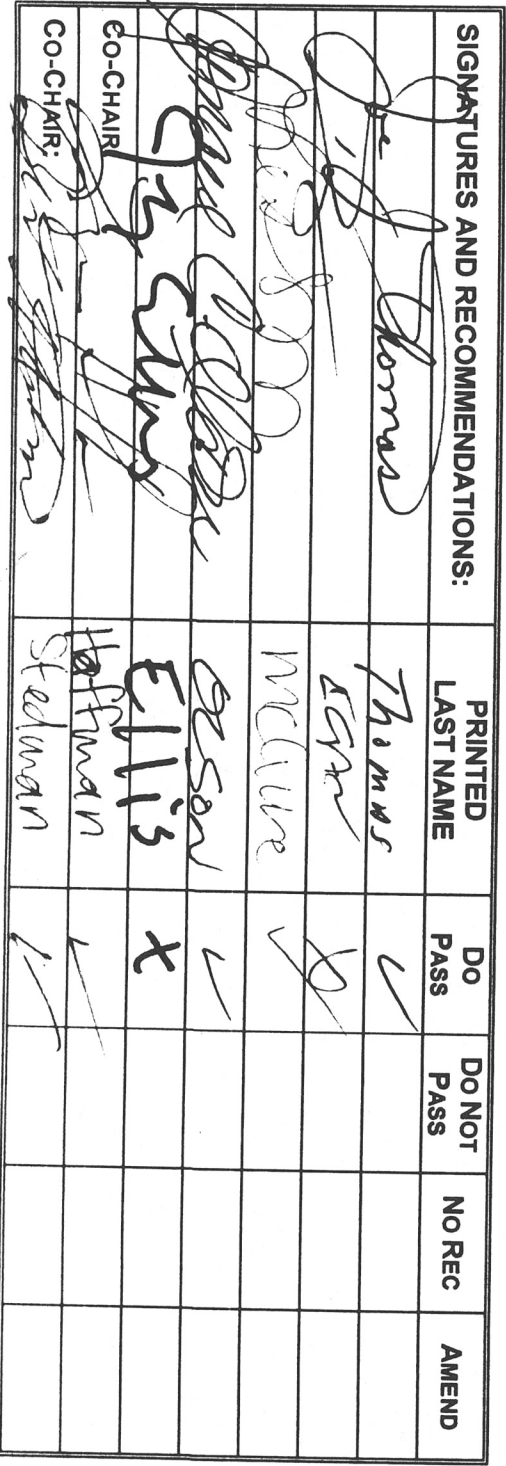 SIGNATURES AND RECOMMENDATIONS: PRINTED LAST NAME DO PASS DO NOT PASS NO REC AMEND
Joe Thomas Thomas ✓
Egan
McClure ✓
Olson ✓
Ellis X
CO-CHAIR: Hoffman ✓
CO-CHAIR: Stedman ✓